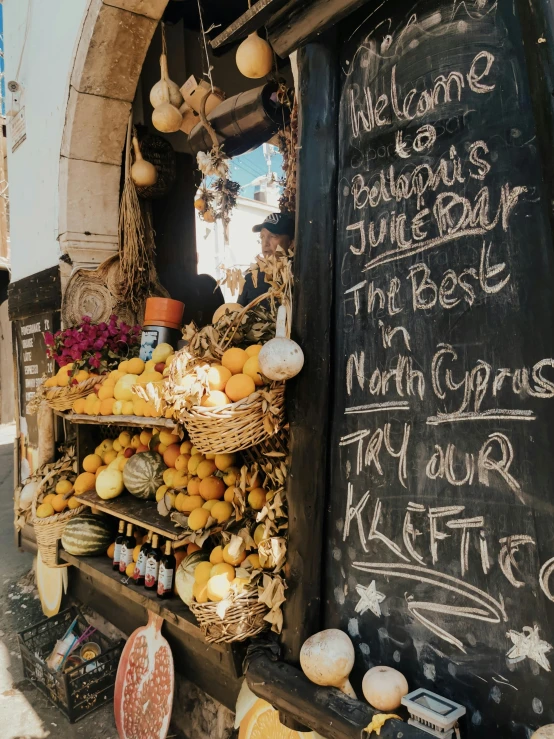 Welcome
to
Bellapais
JUICE BAR
The Best
in
North Cyprus
TRY OUR
KLEFTIC